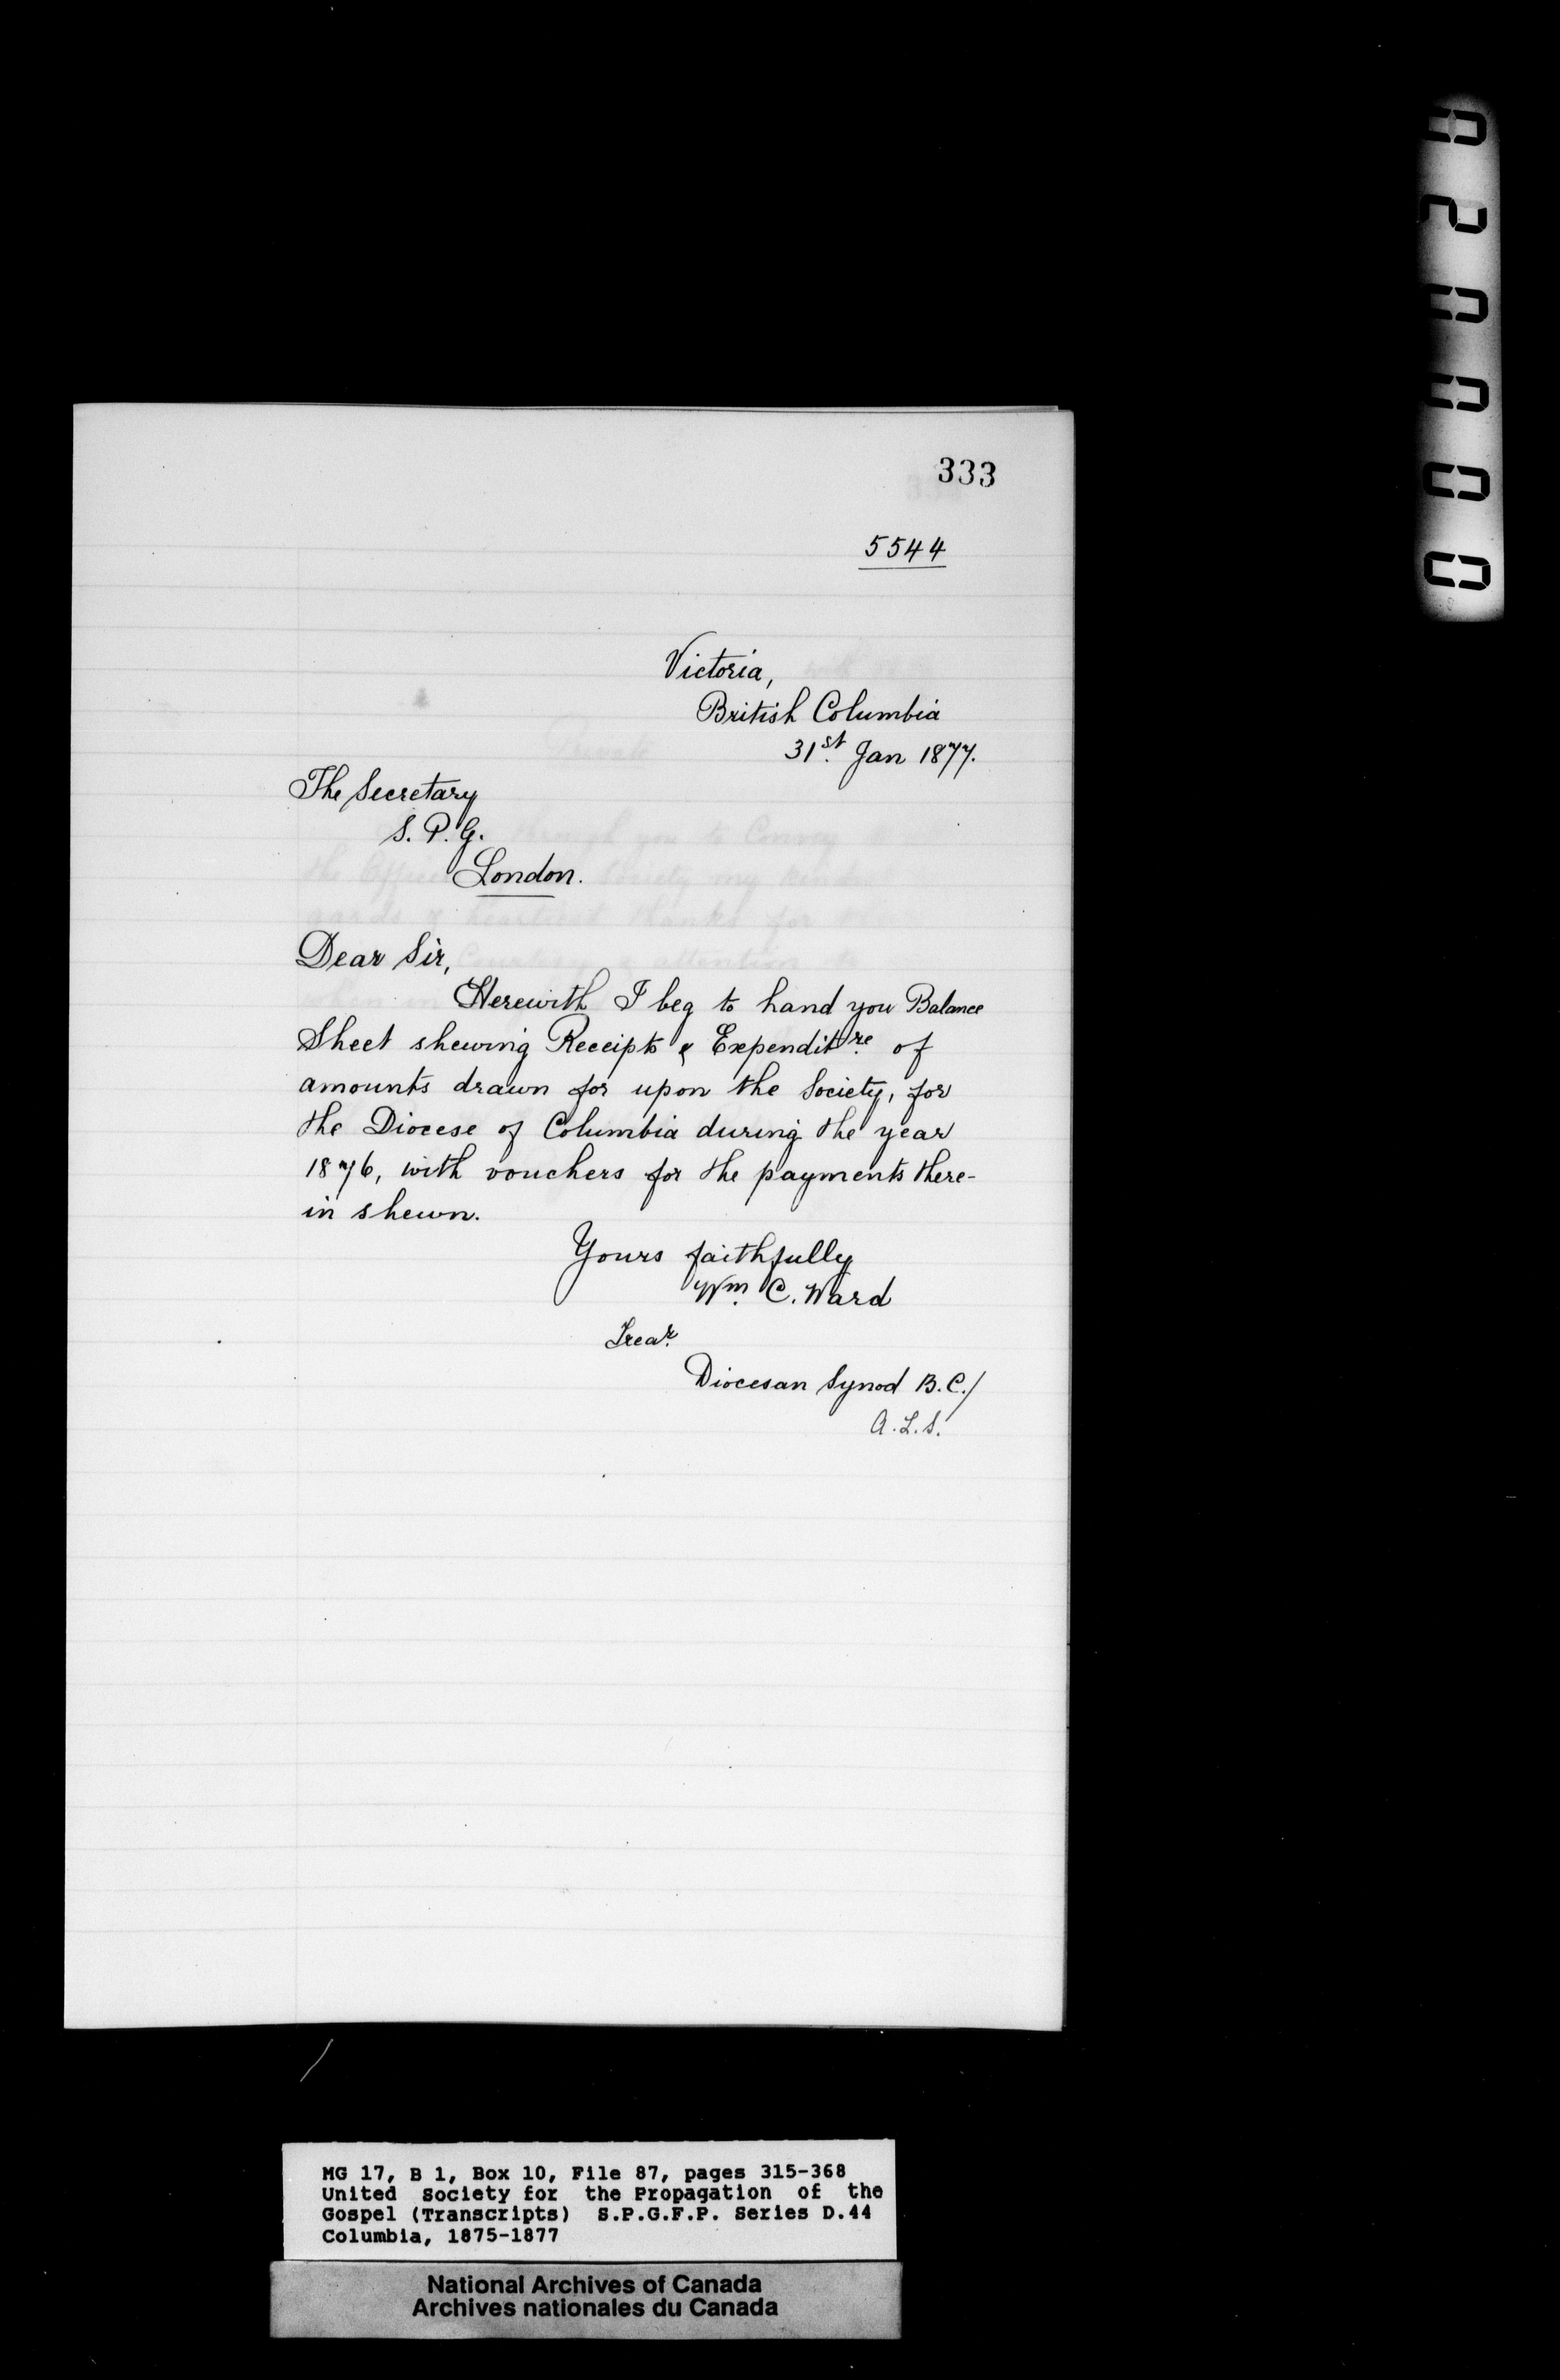 333
5544
Victoria,
British Columbia
31st. Jan 1877.
The Secretary
S. P. G.
London.
Dear Sir,
Herewith I beg to hand you Balance
Sheet shewing Receipts & Expenditre. of
amounts drawn for upon the Society, for
the Diocese of Columbia during the year
1876, with vouchers for the payments there-
in shewn.
Yours faithfully
Wm. C. Ward
Trear.
Diocesan Synod B.C./
A.L.S.
MG 17, B 1, Box 10, File 87, pages 315-368
United Society for the Propagation of the
Gospel (Transcripts) S.P.G.F.P. Series D.44
Columbia, 1875-1877
National Archives of Canada
Archives nationales du Canada